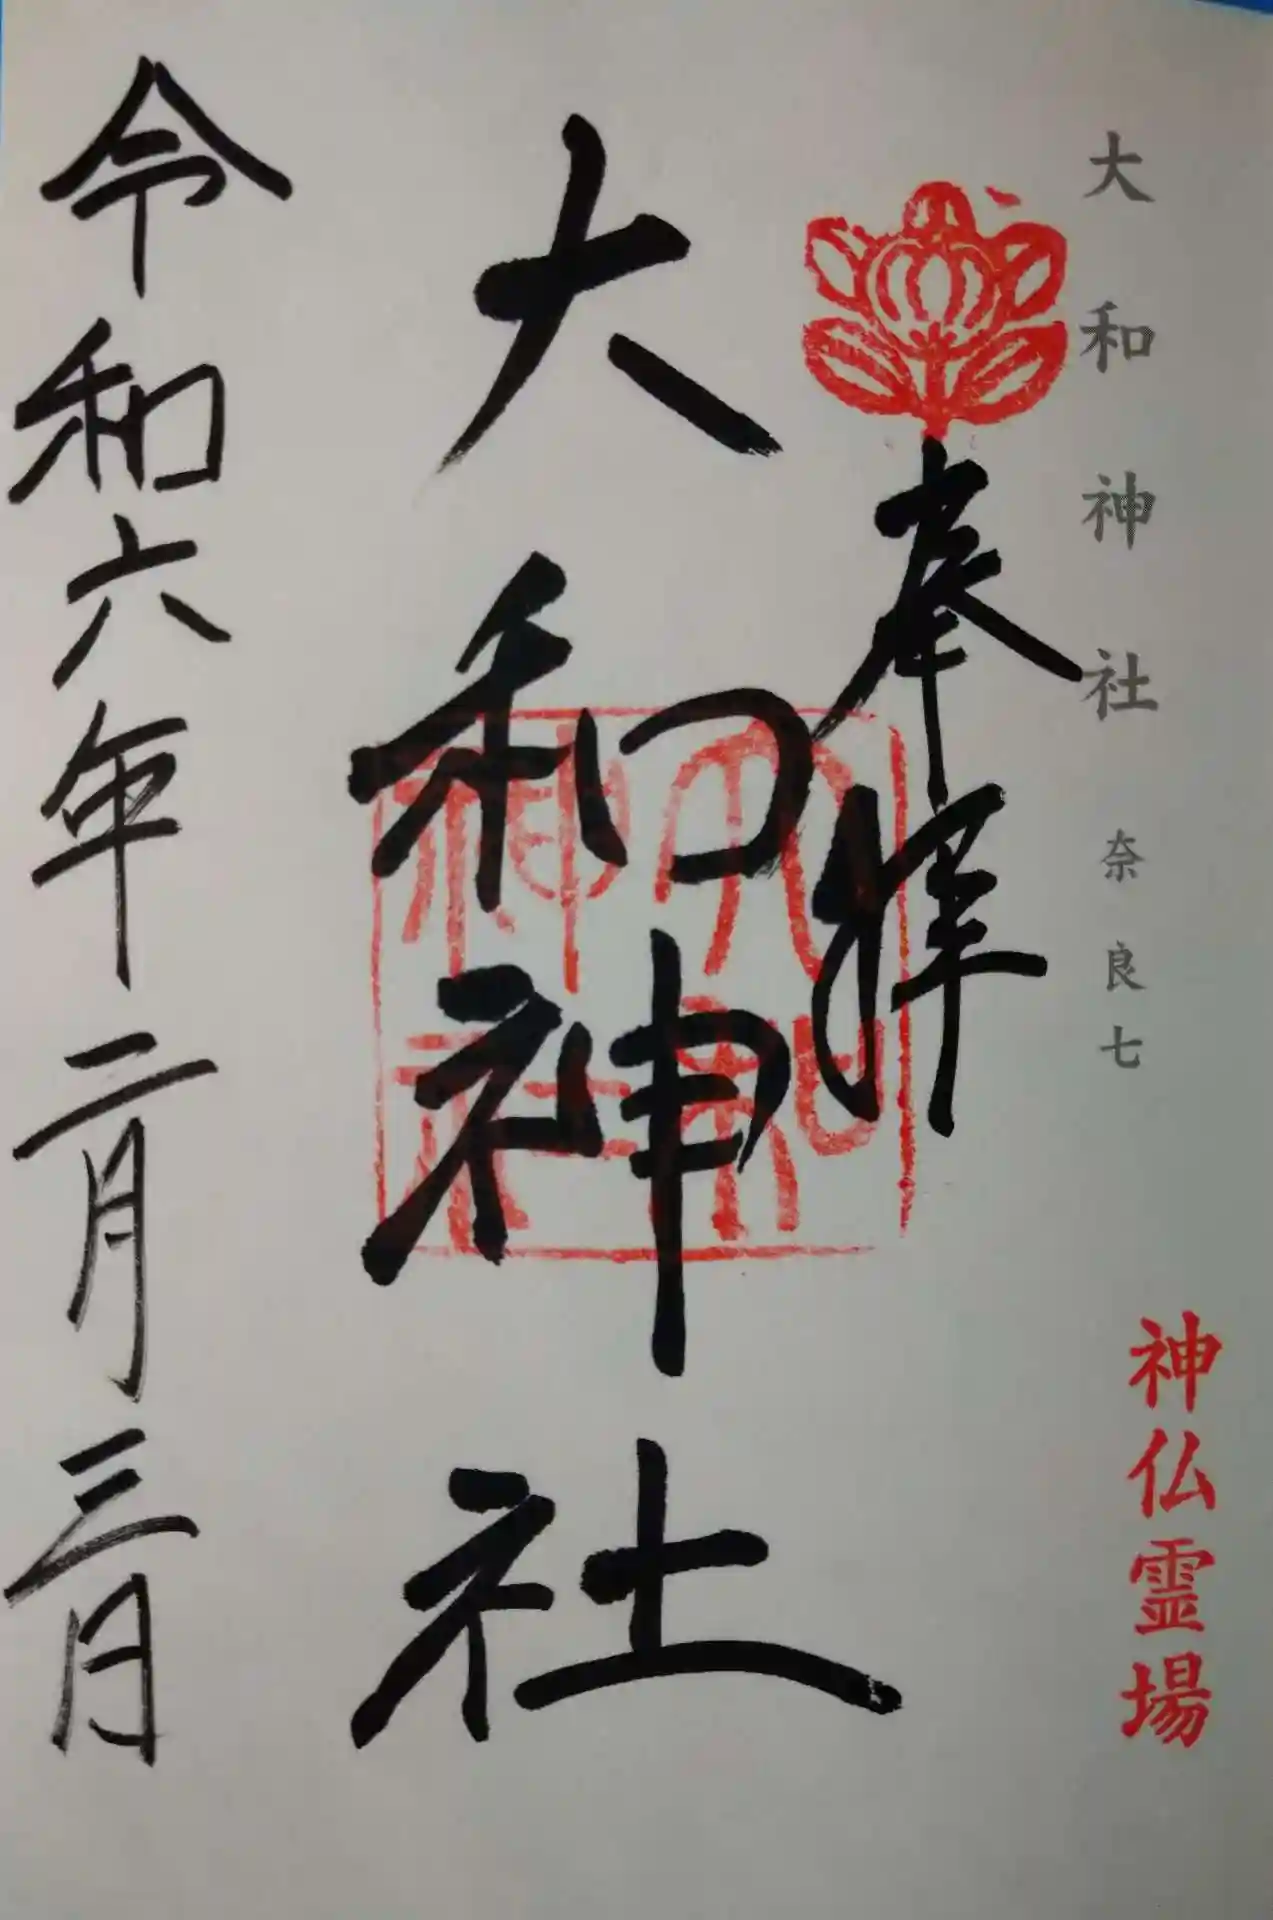 大和神社 奈良七
神仏霊場
奉拝
大和神社
大和
神社
令和六年二月三日